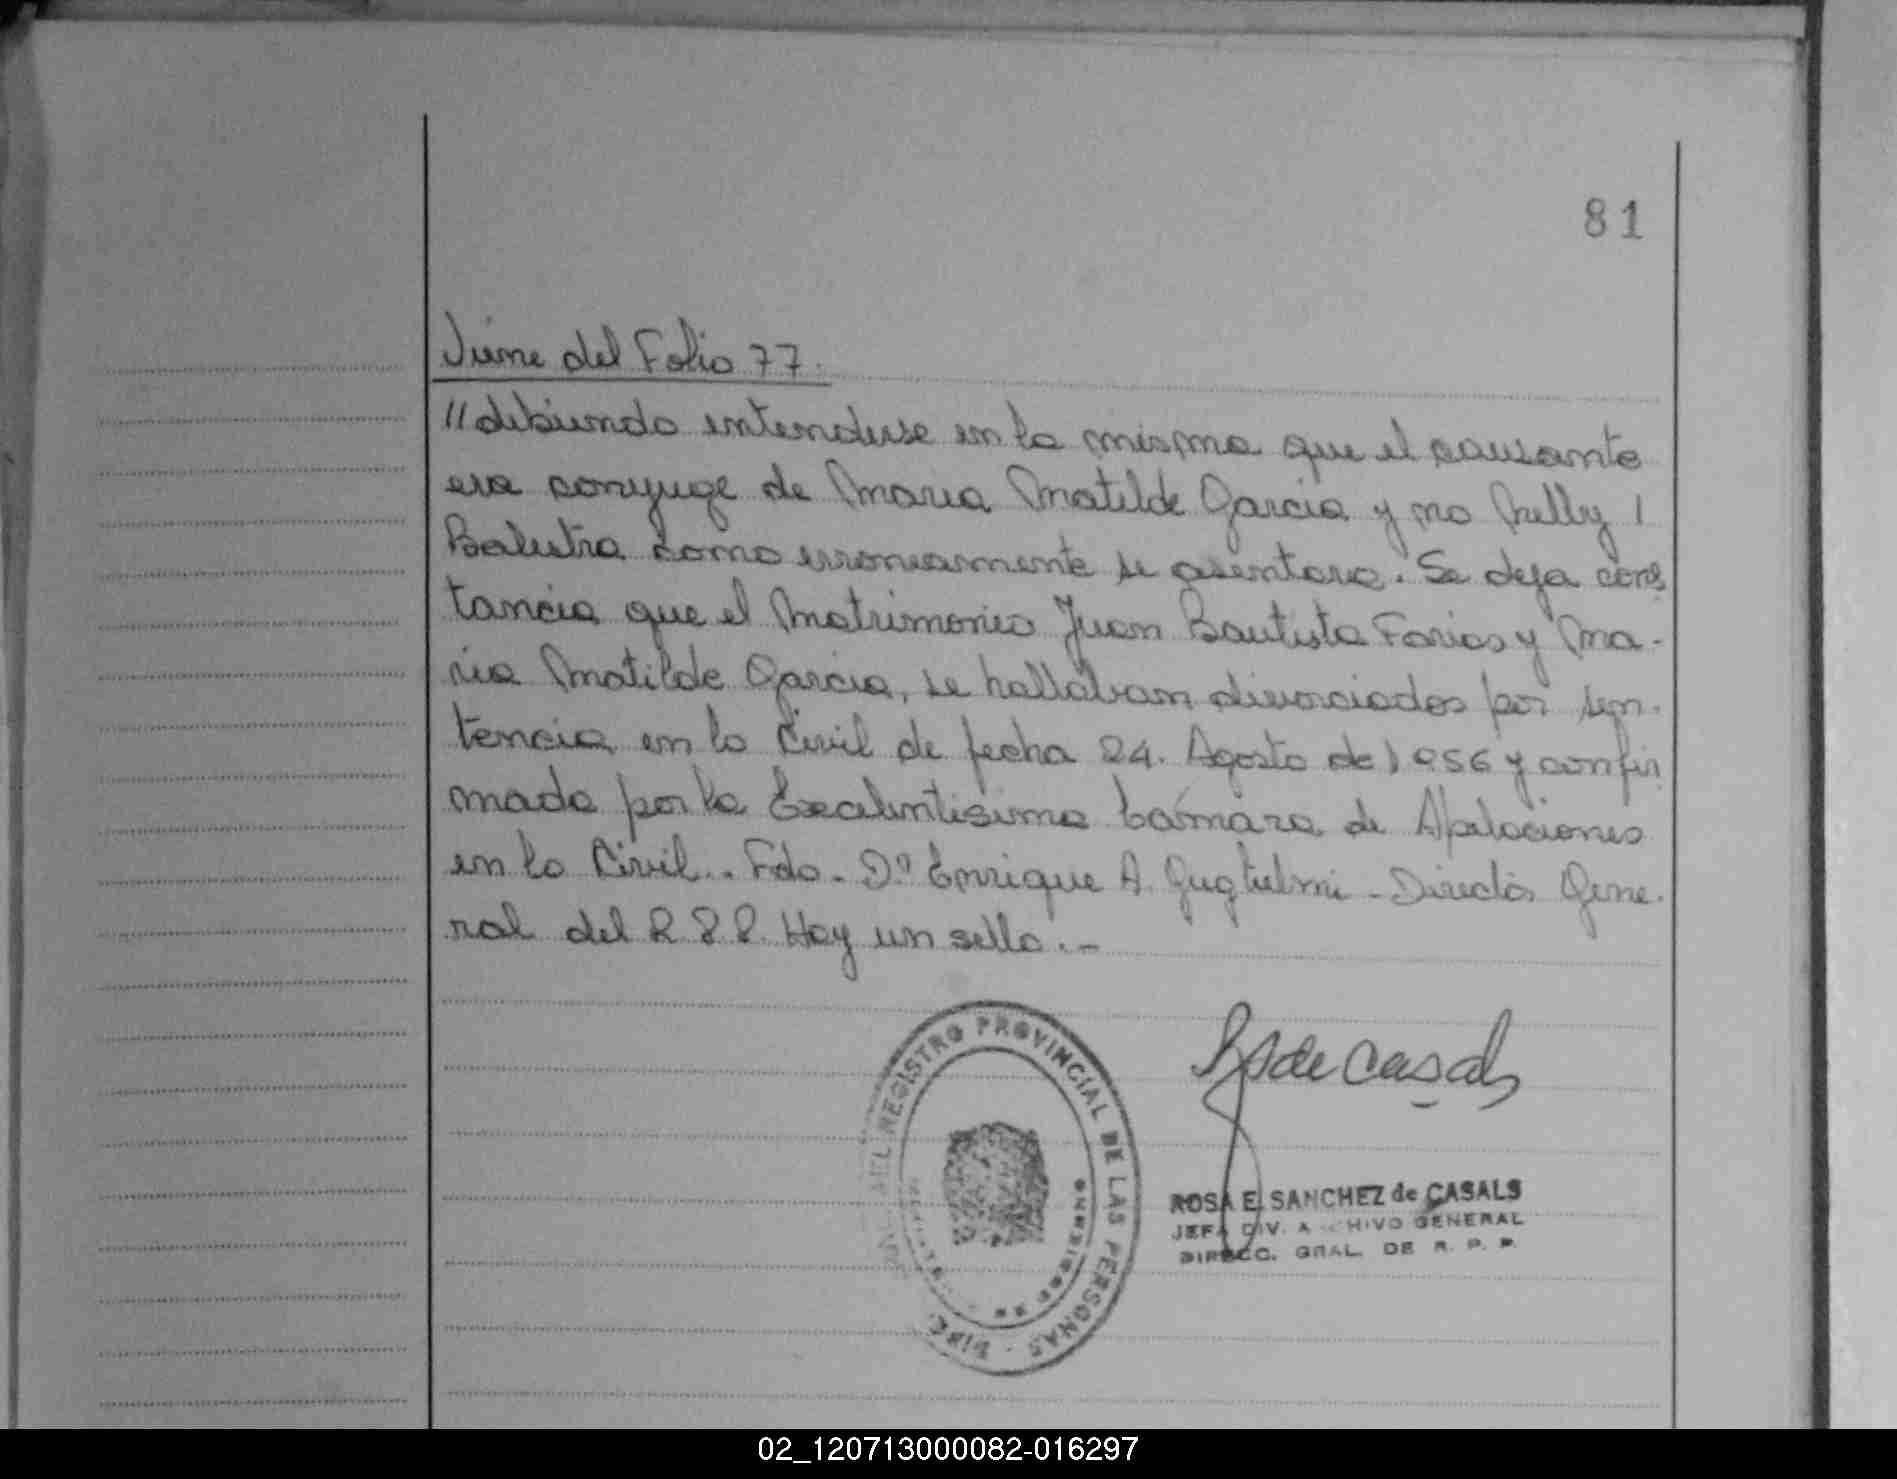 81
Viene del Folio 77.
//debiendo entenderse en la misma que el causante
era conyuge de Maria Matilde Garcia y no Nelly I
Balestra como erroneamente se asentara. Se deja cons
tancia que el Matrimonio Juan Bautista Farias y Ma-
ria Matilde Garcia, se hallaban divorciados por sen-
tencia en lo Civil de fecha 24. Agosto de 1956 y confir
mada por la Excelentisima Cámara de Apelaciones
en lo Civil.. Fdo. Dr Enrique A. Guglielmi - Director Gene-
ral del R.P.P. Hay un sello.-
DEL REGISTRO PROVINCIAL DE LAS PERSONAS - DIRE.
R S de Casals
ROSA E. SANCHEZ de CASALS
JEFA DIV. ARCHIVO GENERAL
DIRECC. GRAL. DE R. P. P.
02_120713000082-016297